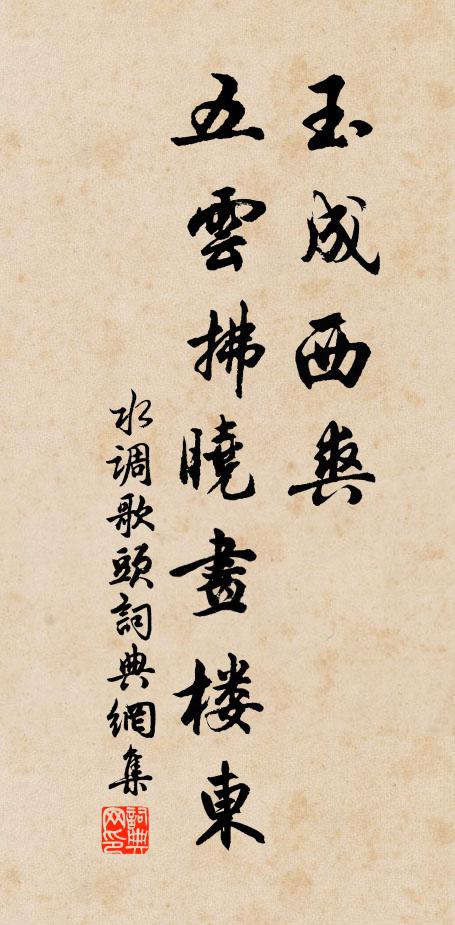 玉成西爽
五雲拂曉畫楼東
水调歌頭詞典網集
詞典网印